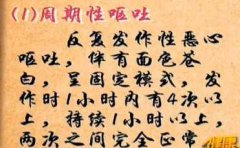 (1)周期性呕吐
反复发作性恶心
呕吐，伴有面色苍
白，呈固定模式，发
作时1小时内有4次以
上，持续1小时以上，
两次之间完全正常